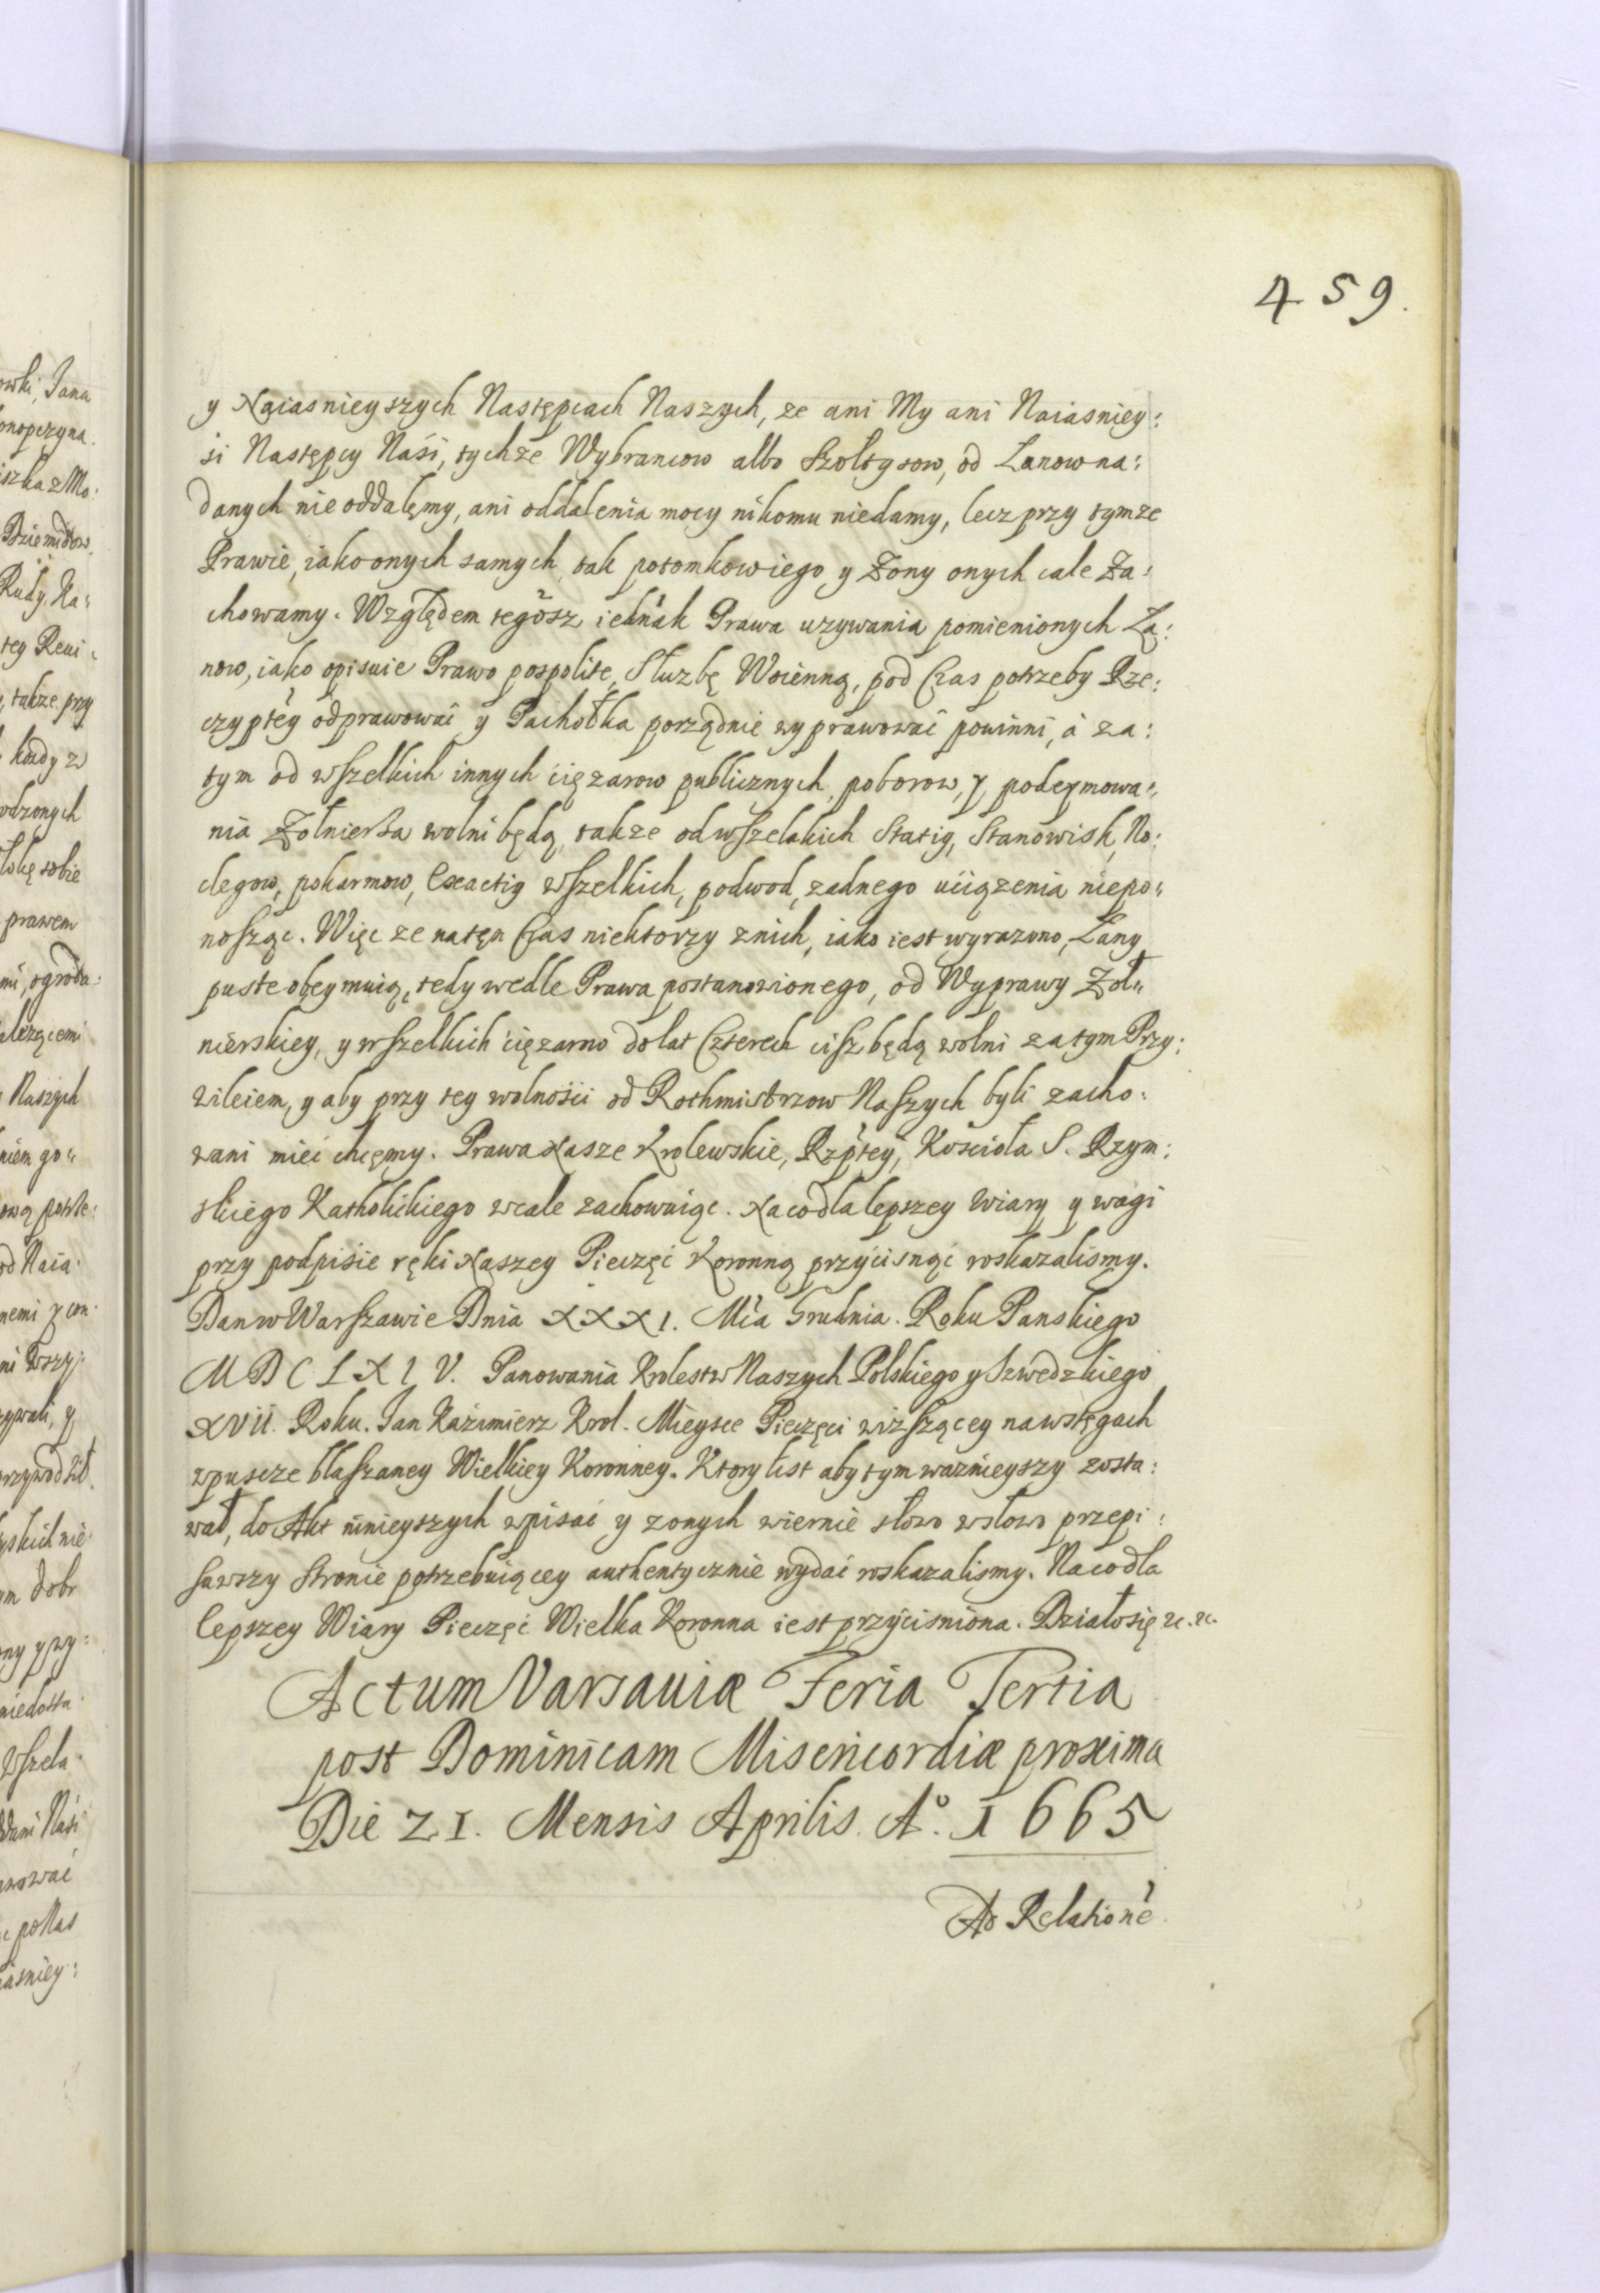 459.
y Naiasnieyszych Następcach Naszych, ze ani My ani Naiasniey:
śi Następcy Naśi, tychze Wybrancow albo Szołtysow, od Lanow na:
danych nie oddalęmy, ani oddalenia mocy nikomu niedamy, lecz przy tymze
Prawie, iako onych samych, tak potomkow iego y Zony onych cale Za:
chowamy. Względem tegosz iednak Prawa uzywania pomienionych La:
now, iako opisuie Prawo pospolite, Sluzbę Woienną, pod Czas potrzeby Rze:
czyptey odprawować y Pachołka porządnie wyprawować powinni, á za:
tym od wszelkich innych cięzarow publicznych, poborow, y podeymowa:
nia Zołnierza wolni będą, takze od wszelakich Statiy, Stanowisk, No:
clegow, pokarmow, Exactiy wszelkich, podwod, zadnego uciązenia niepo:
nosząc. Więc ze na tęn Czas niektorzy znich, iako iest wyrazono, Lany
puste obeymuią, tedy wedle Prawa postanowionego, od Wyprawy Zoł:
nierskiey, y wszelkich cięzarow do lat Czterech cisz będą wolni za tym Przy:
wileiem, y aby przy tey wolnośći od Rothmistrzow Naszych byli zacho:
wani mieć chcęmy. Prawa Nasze Krolewskie, Rzptey, Kościoła S. Rzym:
skiego Katholickiego wcale zachowuiąc. Na co dla lepszey wiary y wagi
przy podpiśie ręki Naszey Pieczęć Koronną przyćisnąć roskazalismy.
Dan w Warszawie Dnia XXXI. Mca Grudnia. Roku Panskiego
MDCLXIV. Panowania Krolestw Naszych Polskiego y Szwedzkiego
XVII. Roku. Jan Kaźimierz Krol. Mieysce Pieczęci wiszącey na wstęgach
wpuszcze blaszaney Wielkiey Koronney. Ktory list aby tym waznieyszy zosta:
wał, do Akt ninieyszych wpisać y zonych wiernie słowo wsłowo przepi:
sawszy Stronie potrzebuiącey authentycznie wydać roskazalismy. Na co dla
lepszey Wiary Pieczęć Wielka Koronna iest przyćisniona. Działo się zc. zc.
Actum Varsaviæ Feria Tertia
post Dominicam Misericordiæ proxima
Die 21. Mensis Aprilis. A°. 1665
Ad Relationē